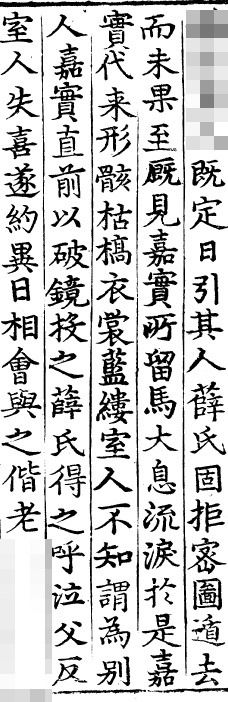 既定日引其人薛氏固拒密圖遁去
而未果至厩見嘉實所留馬大息流淚扵是嘉
實代来形骸枯槁衣裳藍縷室人不知謂為別
人嘉實直前以破鏡投之薛氏得之呼泣父反
室人失喜遂約異日相會與之偕老